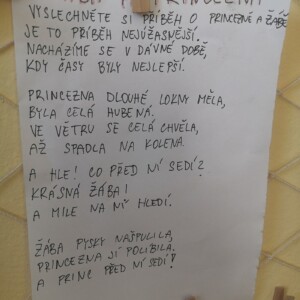 VYSLECHNĚTE SI PŘÍBĚH O PRINCEZNĚ A ŽÁBĚ
JE TO PŘÍBĚH NEJÚŽASNĚJŠÍ.
NACHÁZÍME SE V DÁVNÉ DOBĚ,
KDY ČASY BYLY NEJLEPŠÍ.
PRINCEZNA DLOUHÉ LOKNY MĚLA,
BYLA CELÁ HUBENÁ.
VE VĚTRU SE CELÁ CHVĚLA,
AŽ SPADLA NA KOLENA.
A HLE! CO PŘED NÍ SEDÍ?
KRÁSNÁ ŽÁBA!
A MILE NA NIŽ HLEDÍ.
ŽÁBA PYSKY NAŠPULILA,
PRINCEZNA JI POLÍBILA.
A PRINC PŘED NÍ SEDÍ!